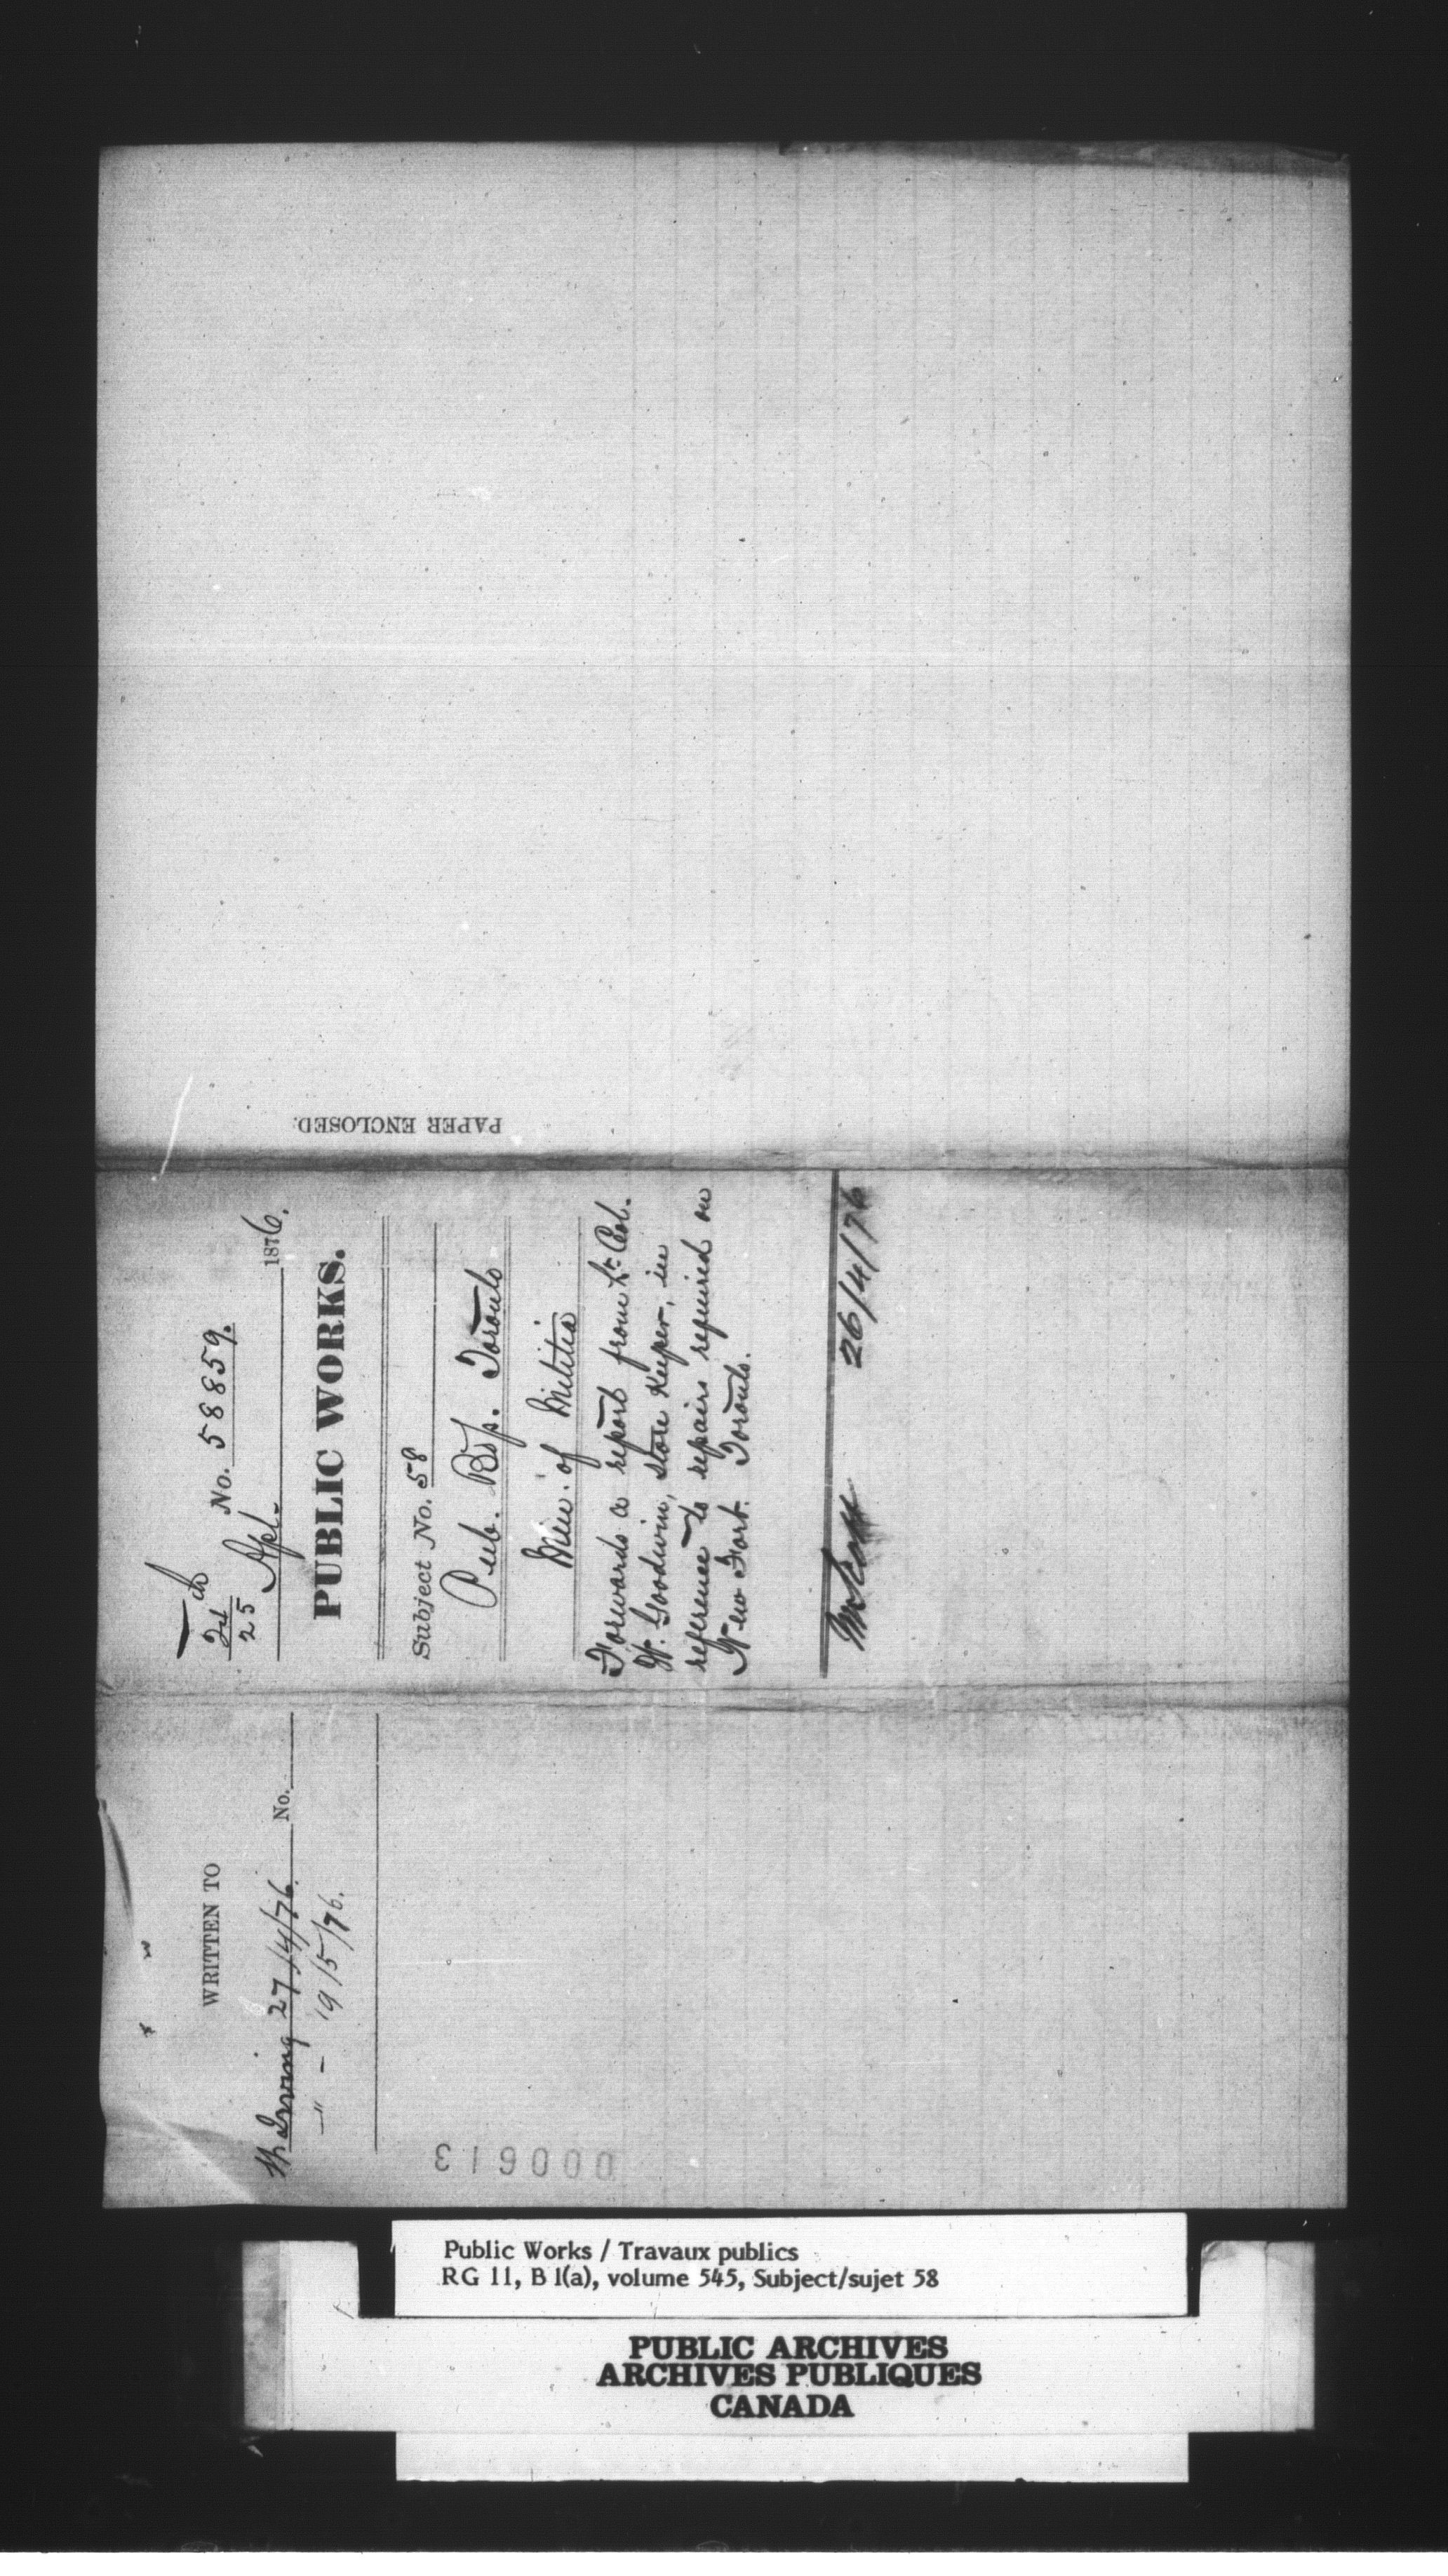 WRITTEN TO
Irving 27/4/76. No.
" - 19/5/76.
000613
No. 58859.
24
25 Apl. 1876.
PUBLIC WORKS.
Subject No. 58
Pub. Bdgs. Toronto
Min. of Militia
Forwards a report from Lt. Col.
W. Goodwin, Store Keeper, in
reference to repairs required on
New Fort. Toronto.
26/4/76
PAPER ENCLOSED.
Public Works / Travaux publics
RG 11, B 1(a), volume 545, Subject/sujet 58
PUBLIC ARCHIVES
ARCHIVES PUBLIQUES
CANADA